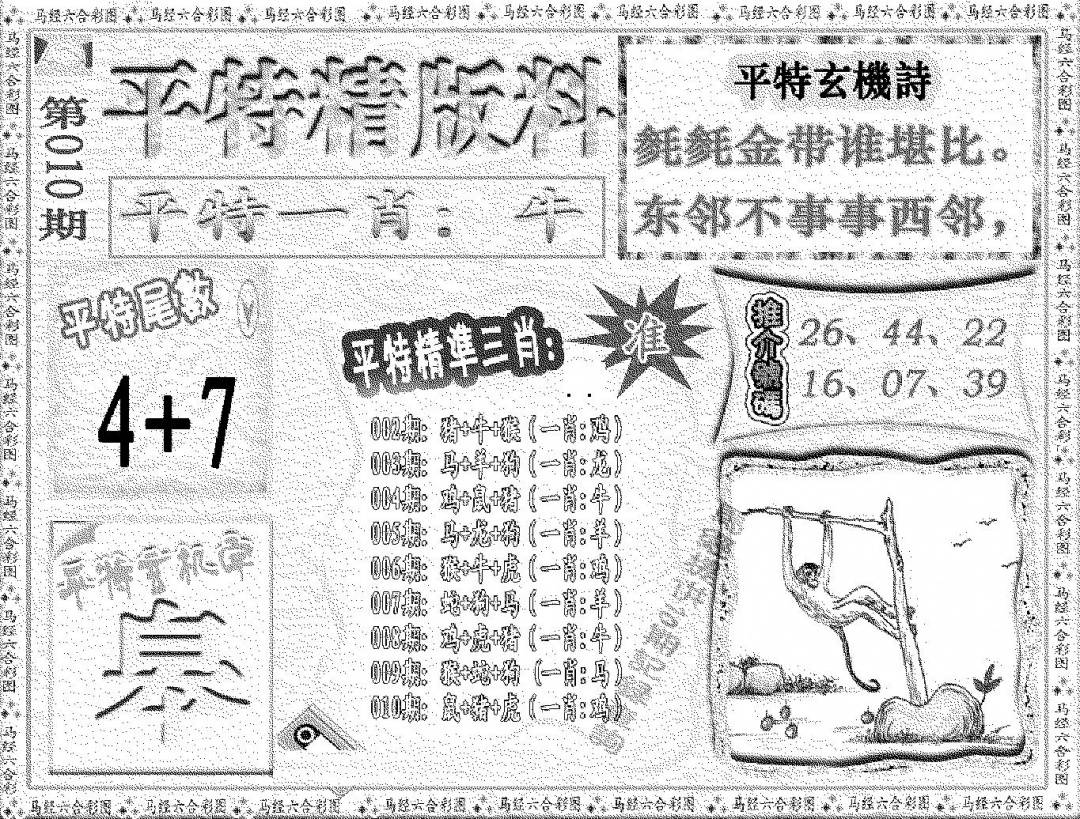 马经六合彩图 马经六合彩图 马经六合彩图 马经六合彩图 马经六合彩图 马经六合彩图 马经六合彩图 马经六合彩图 马经六合彩图
第010期
平特精版料
平特一肖：牛
平特玄機詩
毵毵金带谁堪比。
东邻不事事西邻，
平特尾数
4+7
平特精準三肖:
准
002期: 猪+牛+猴 (一肖:鸡)
003期: 马+羊+狗 (一肖:龙)
004期: 鸡+鼠+猪 (一肖:牛)
005期: 马+龙+狗 (一肖:羊)
006期: 猴+牛+虎 (一肖:鸡)
007期: 蛇+狗+马 (一肖:羊)
008期: 鸡+虎+猪 (一肖:牛)
009期: 猴+蛇+狗 (一肖:马)
010期: 鼠+猪+虎 (一肖:鸡)
推介號碼
26、44、22
16、07、39
平特玄机字
马经六合彩图 马经六合彩图 马经六合彩图 马经六合彩图 马经六合彩图 马经六合彩图 马经六合彩图 马经六合彩图 马经六合彩图